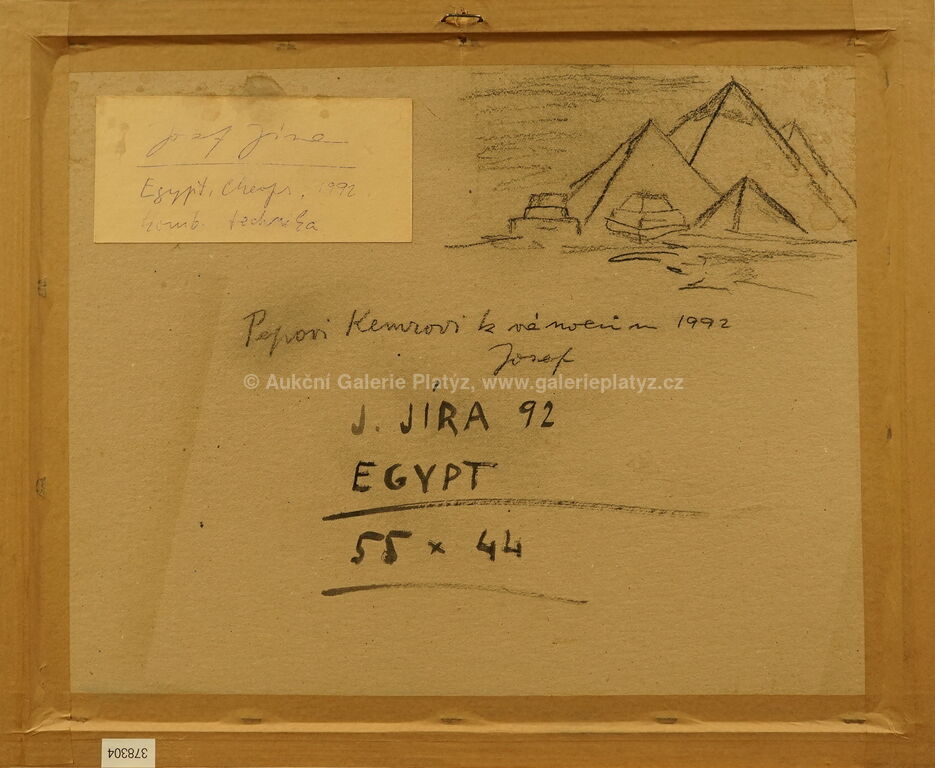 Josef Jíra
Egypt, Cheops, 1992
komb. technika
Pepovi Kemrovi k vánocům 1992
Josef
© Aukční Galerie Platýz, www.galerieplatyz.cz
J. JÍRA 92
EGYPT
55 x 44
378304